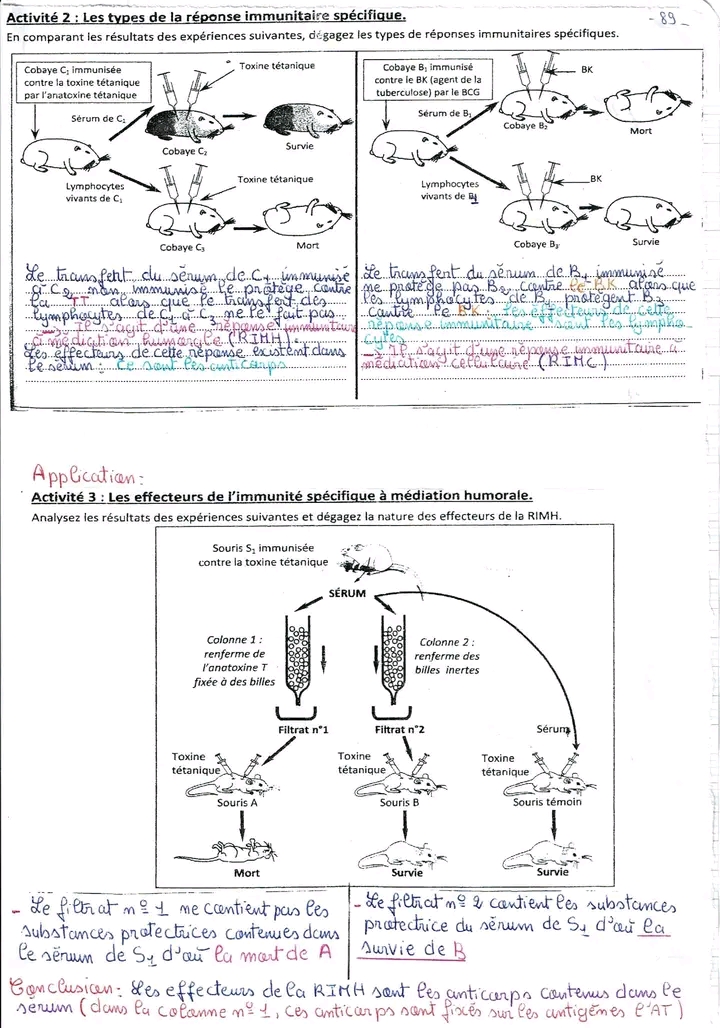 Activité 2 : Les types de la réponse immunitaire spécifique.
- 89 -
En comparant les résultats des expériences suivantes, dégagez les types de réponses immunitaires spécifiques.
Cobaye C₁ immunisée
contre la toxine tétanique
par l'anatoxine tétanique
Toxine tétanique
Sérum de C₁
Cobaye C₂
Survie
Lymphocytes
vivants de C₁
Toxine tétanique
Cobaye C₃
Mort
Le transfert du sérum de C₁ immunisé
à C₂ non immunisé le protège contre
la TT alors que le transfert des
lymphocytes de C₁ à C₃ ne le fait pas
→ Il s'agit d'une réponse immunitaire
à médiation humorale (RIMH).
Les effecteurs de cette réponse existent dans
le sérum : Ce sont les anticorps
Cobaye B₁ immunisé
contre le BK (agent de la
tuberculose) par le BCG
BK
Sérum de B₁
Cobaye B₂
Mort
Lymphocytes
vivants de B1
BK
Cobaye B₃
Survie
Le transfert du sérum de B₁ immunisé
ne protège pas B₂ contre le BK alors que
les lymphocytes de B₁ protègent B₃
contre le BK. Les effecteurs de cette
réponse immunitaire sont les lympho-
cytes
→ Il s'agit d'une réponse immunitaire à
médiation cellulaire (RIMC)
Application :
Activité 3 : Les effecteurs de l'immunité spécifique à médiation humorale.
Analysez les résultats des expériences suivantes et dégagez la nature des effecteurs de la RIMH.
Souris S₁ immunisée
contre la toxine tétanique
SÉRUM
Colonne 1 :
renferme de
l'anatoxine T
fixée à des billes
Colonne 2 :
renferme des
billes inertes
Filtrat n°1
Filtrat n°2
Sérum
Toxine
tétanique
Toxine
tétanique
Toxine
tétanique
Souris A
Souris B
Souris témoin
Mort
Survie
Survie
- Le filtrat nº 1 ne contient pas les
substances protectrices contenues dans
le sérum de S₁ d'où la mort de A
- Le filtrat nº 2 contient les substances
protectrice du sérum de S₁ d'où la
survie de B
Conclusion : Les effecteurs de la RIMH sont les anticorps contenus dans le
serum (dans la colonne nº 1, ces anticorps sont fixés sur les antigènes l'AT)